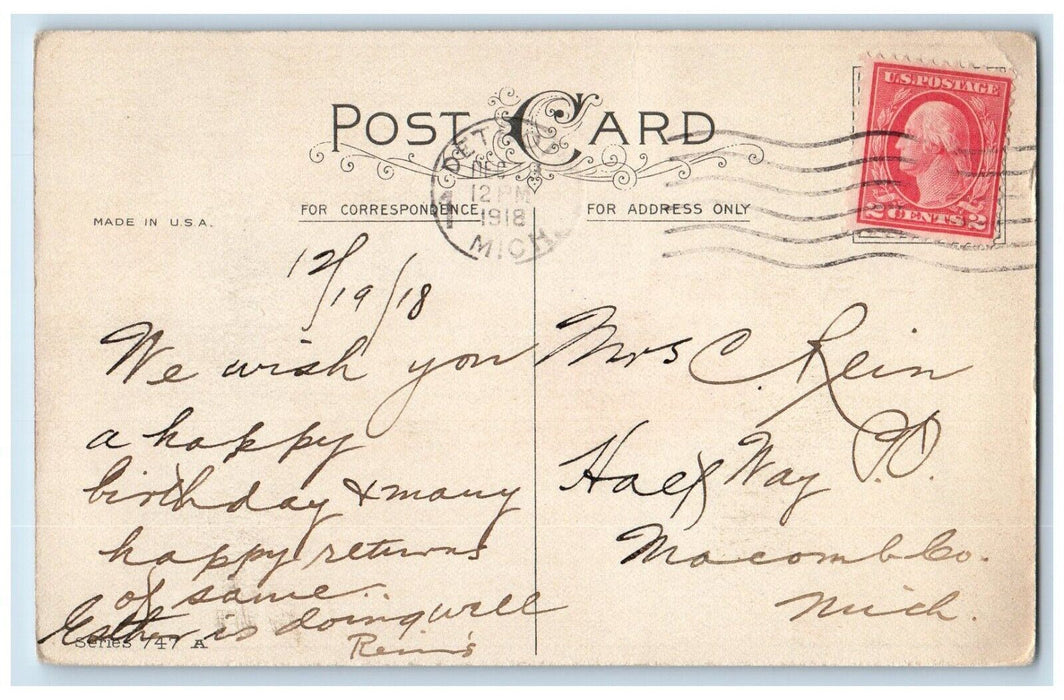 POST CARD
U.S. POSTAGE
2 CENTS 2
DET
DEC
12 PM
1918
MICH.
MADE IN U.S.A.
FOR CORRESPONDENCE
FOR ADDRESS ONLY
12/19/18
We wish you
a happy
birthday & many
happy returns
of same..
Esther is doing well
Rein's
Series 747 A
Mrs C. Rein
Half Way P.O.
Macomb Co.
Mich.